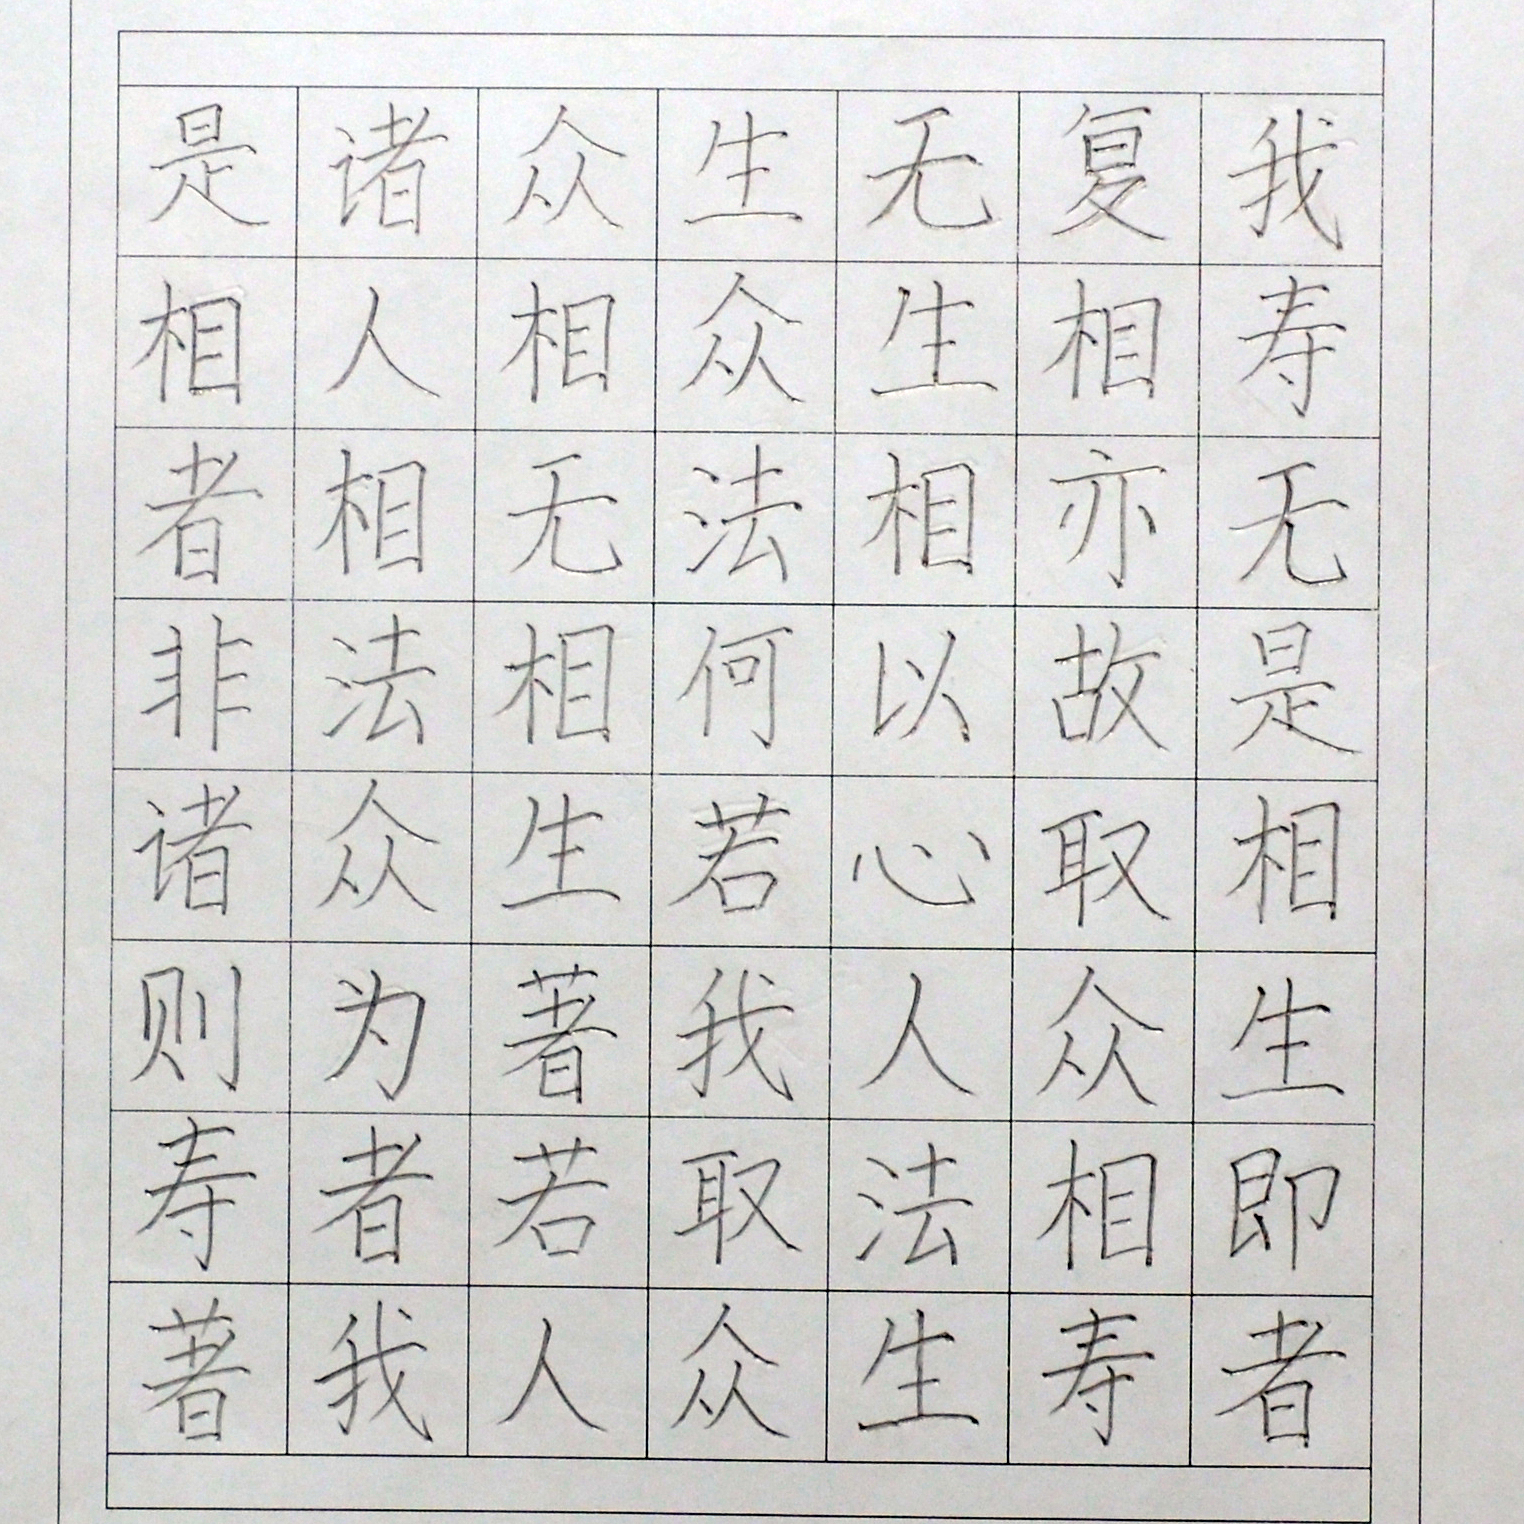 是诸众生无复我
相人相众生相寿
者相无法相亦无
非法相何以故是
诸众生若心取相
则为著我人众生
寿者若取法相即
著我人众生寿者